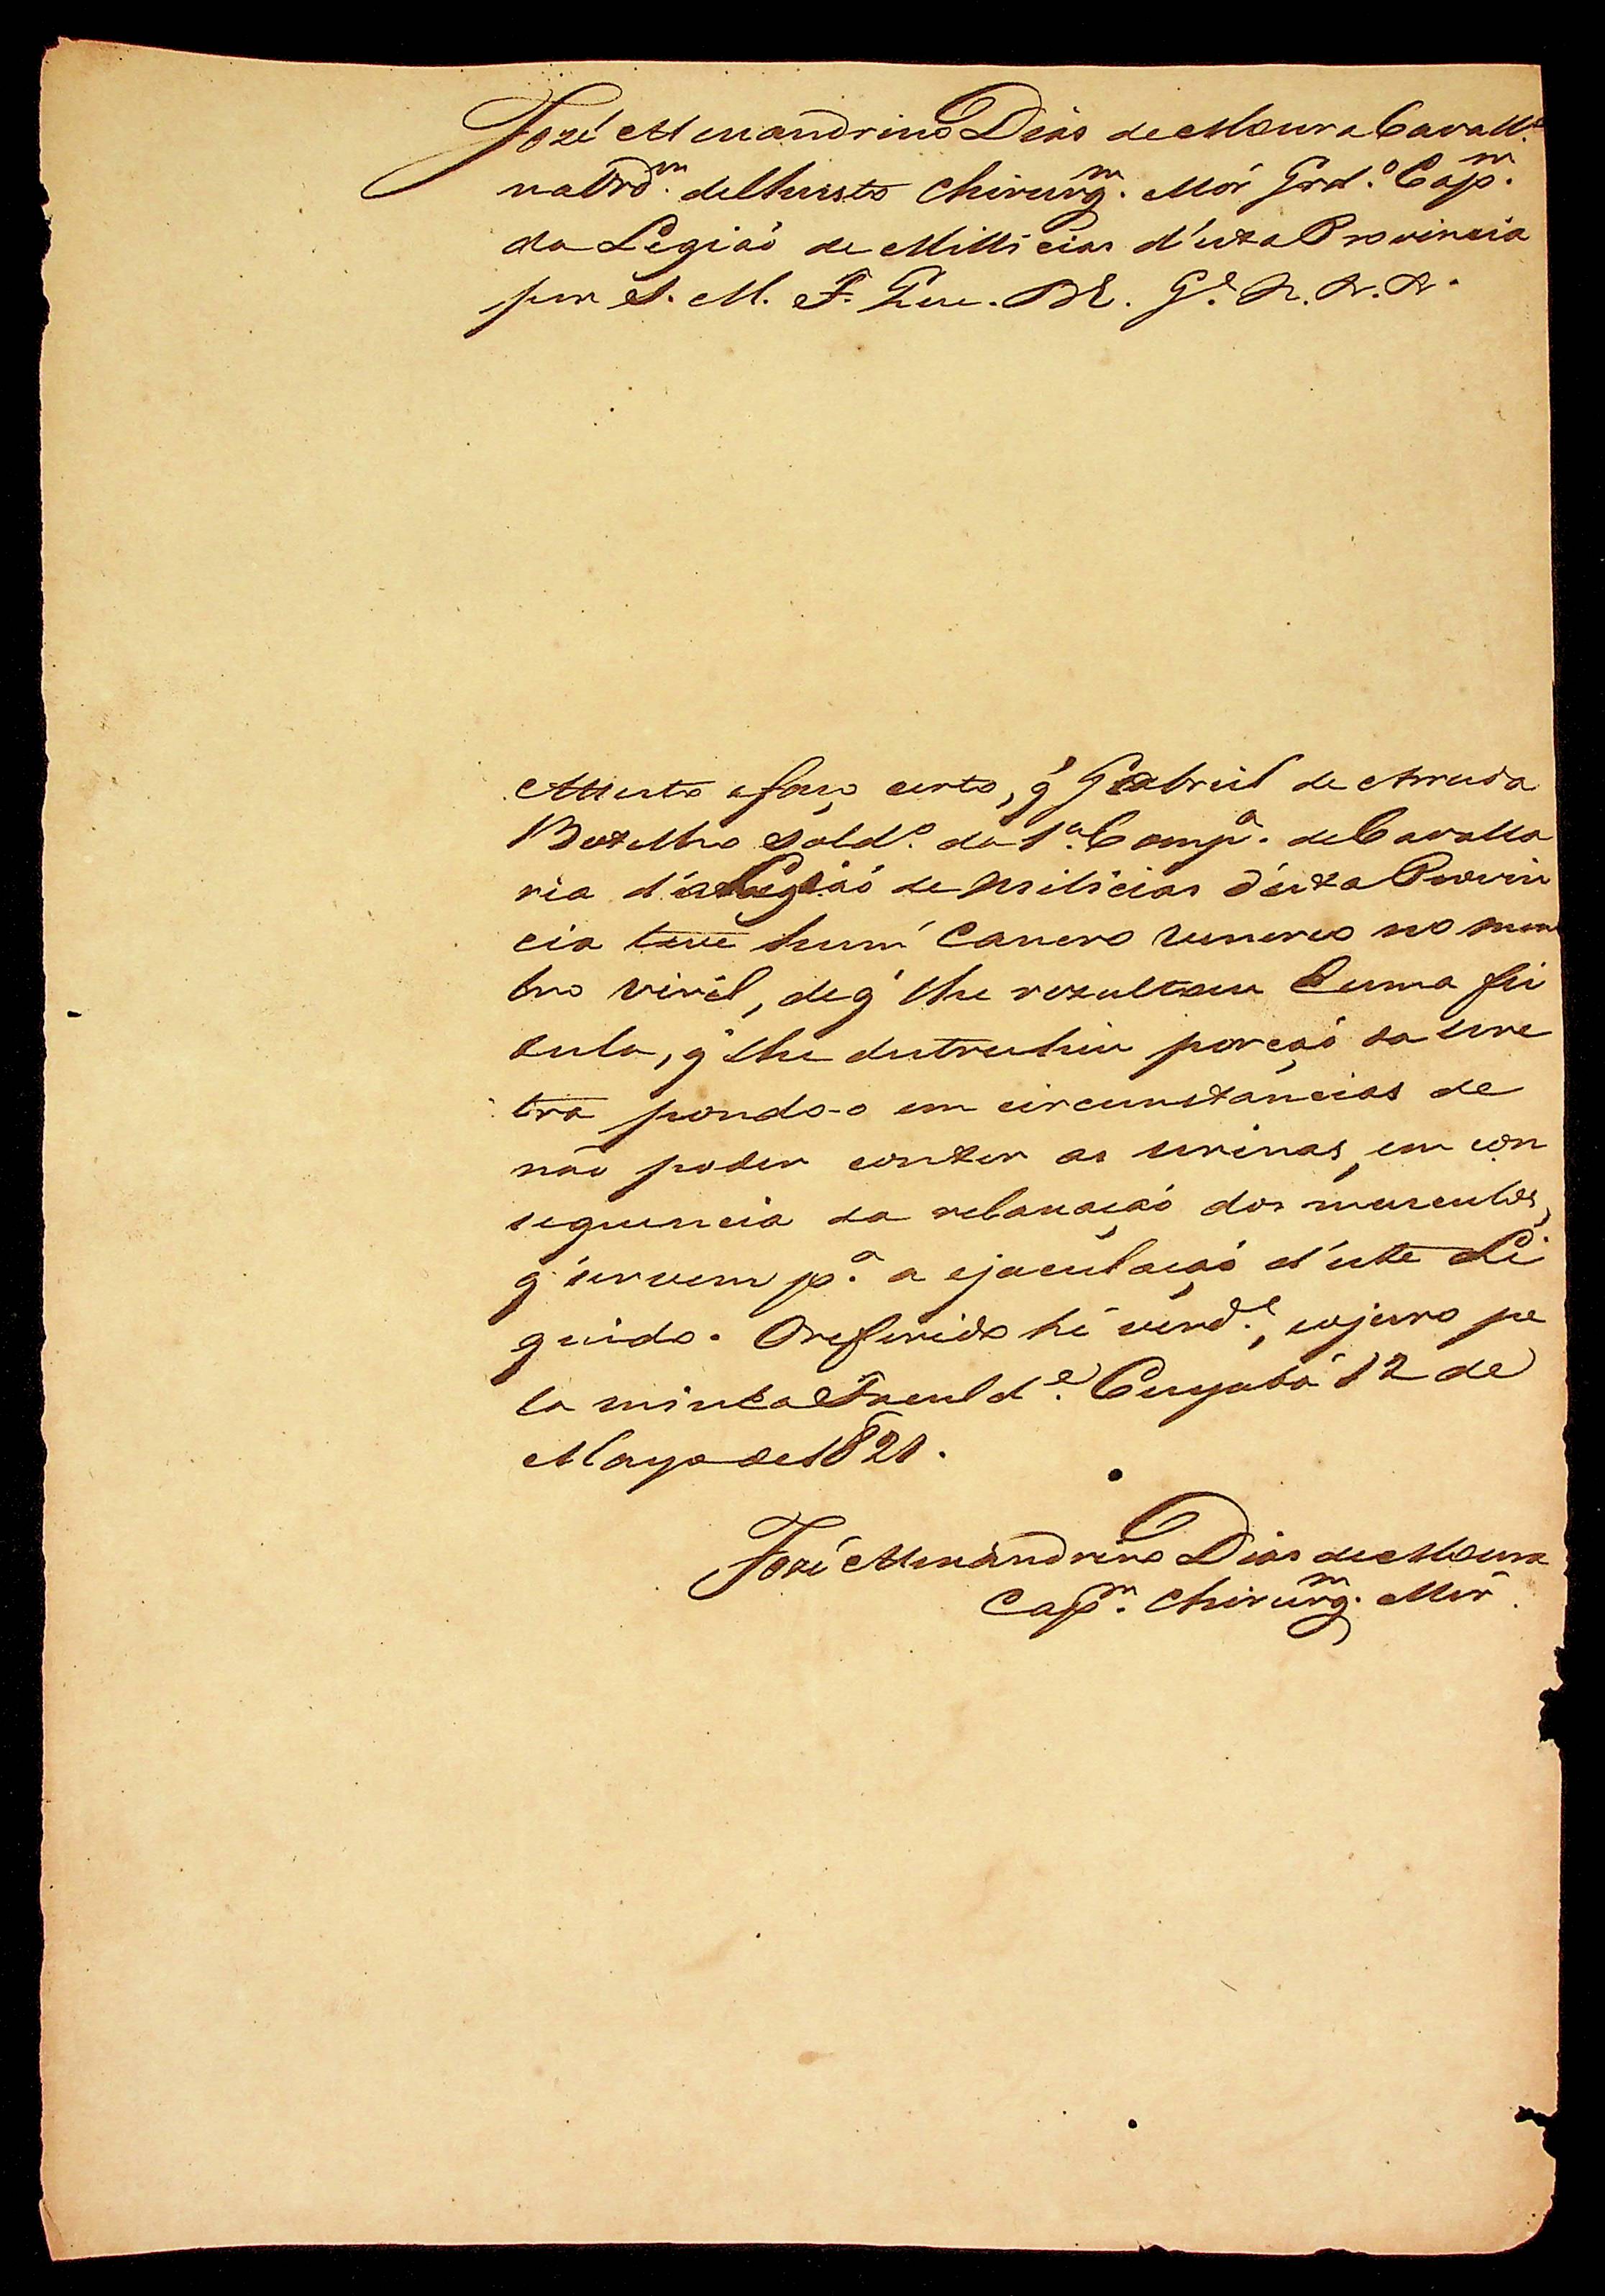 Jozé Menandrino Dias de Moura Cavall.º
na Ord.m de Christo Chirurg.m Mór Grd.º Cap.m
da Legiaó de Millicias d'esta Provincia
por S. M. F. Que. D.E. G.e &. &. &.
Attesto e faço certo, q' Gabriel de Arruda
Botelho Sold.º da 1.ª Comp.ª de Cavalla
ria d'a Legiaó de Milicias d'esta Provin
cia teve hum Cancro venereo no mem
bro viril, de q' lhe rezultou huma fis
tula, q' lhe destruhiu porçaó da ure
tra pondo-o em circunstancias de
não poder conter as urinas, em con
sequencia da relaxaçaó dos musculos,
q' servem p.ª a ejaculaçaó d'este Li
quido. O referido hé verd.e, e o juro pe
la minha Faculd.e Cuyabá 12 de
Mayo de 1821.
Jozé Menandrino Dias de Moura
Cap.m Chirurg.m Mór.